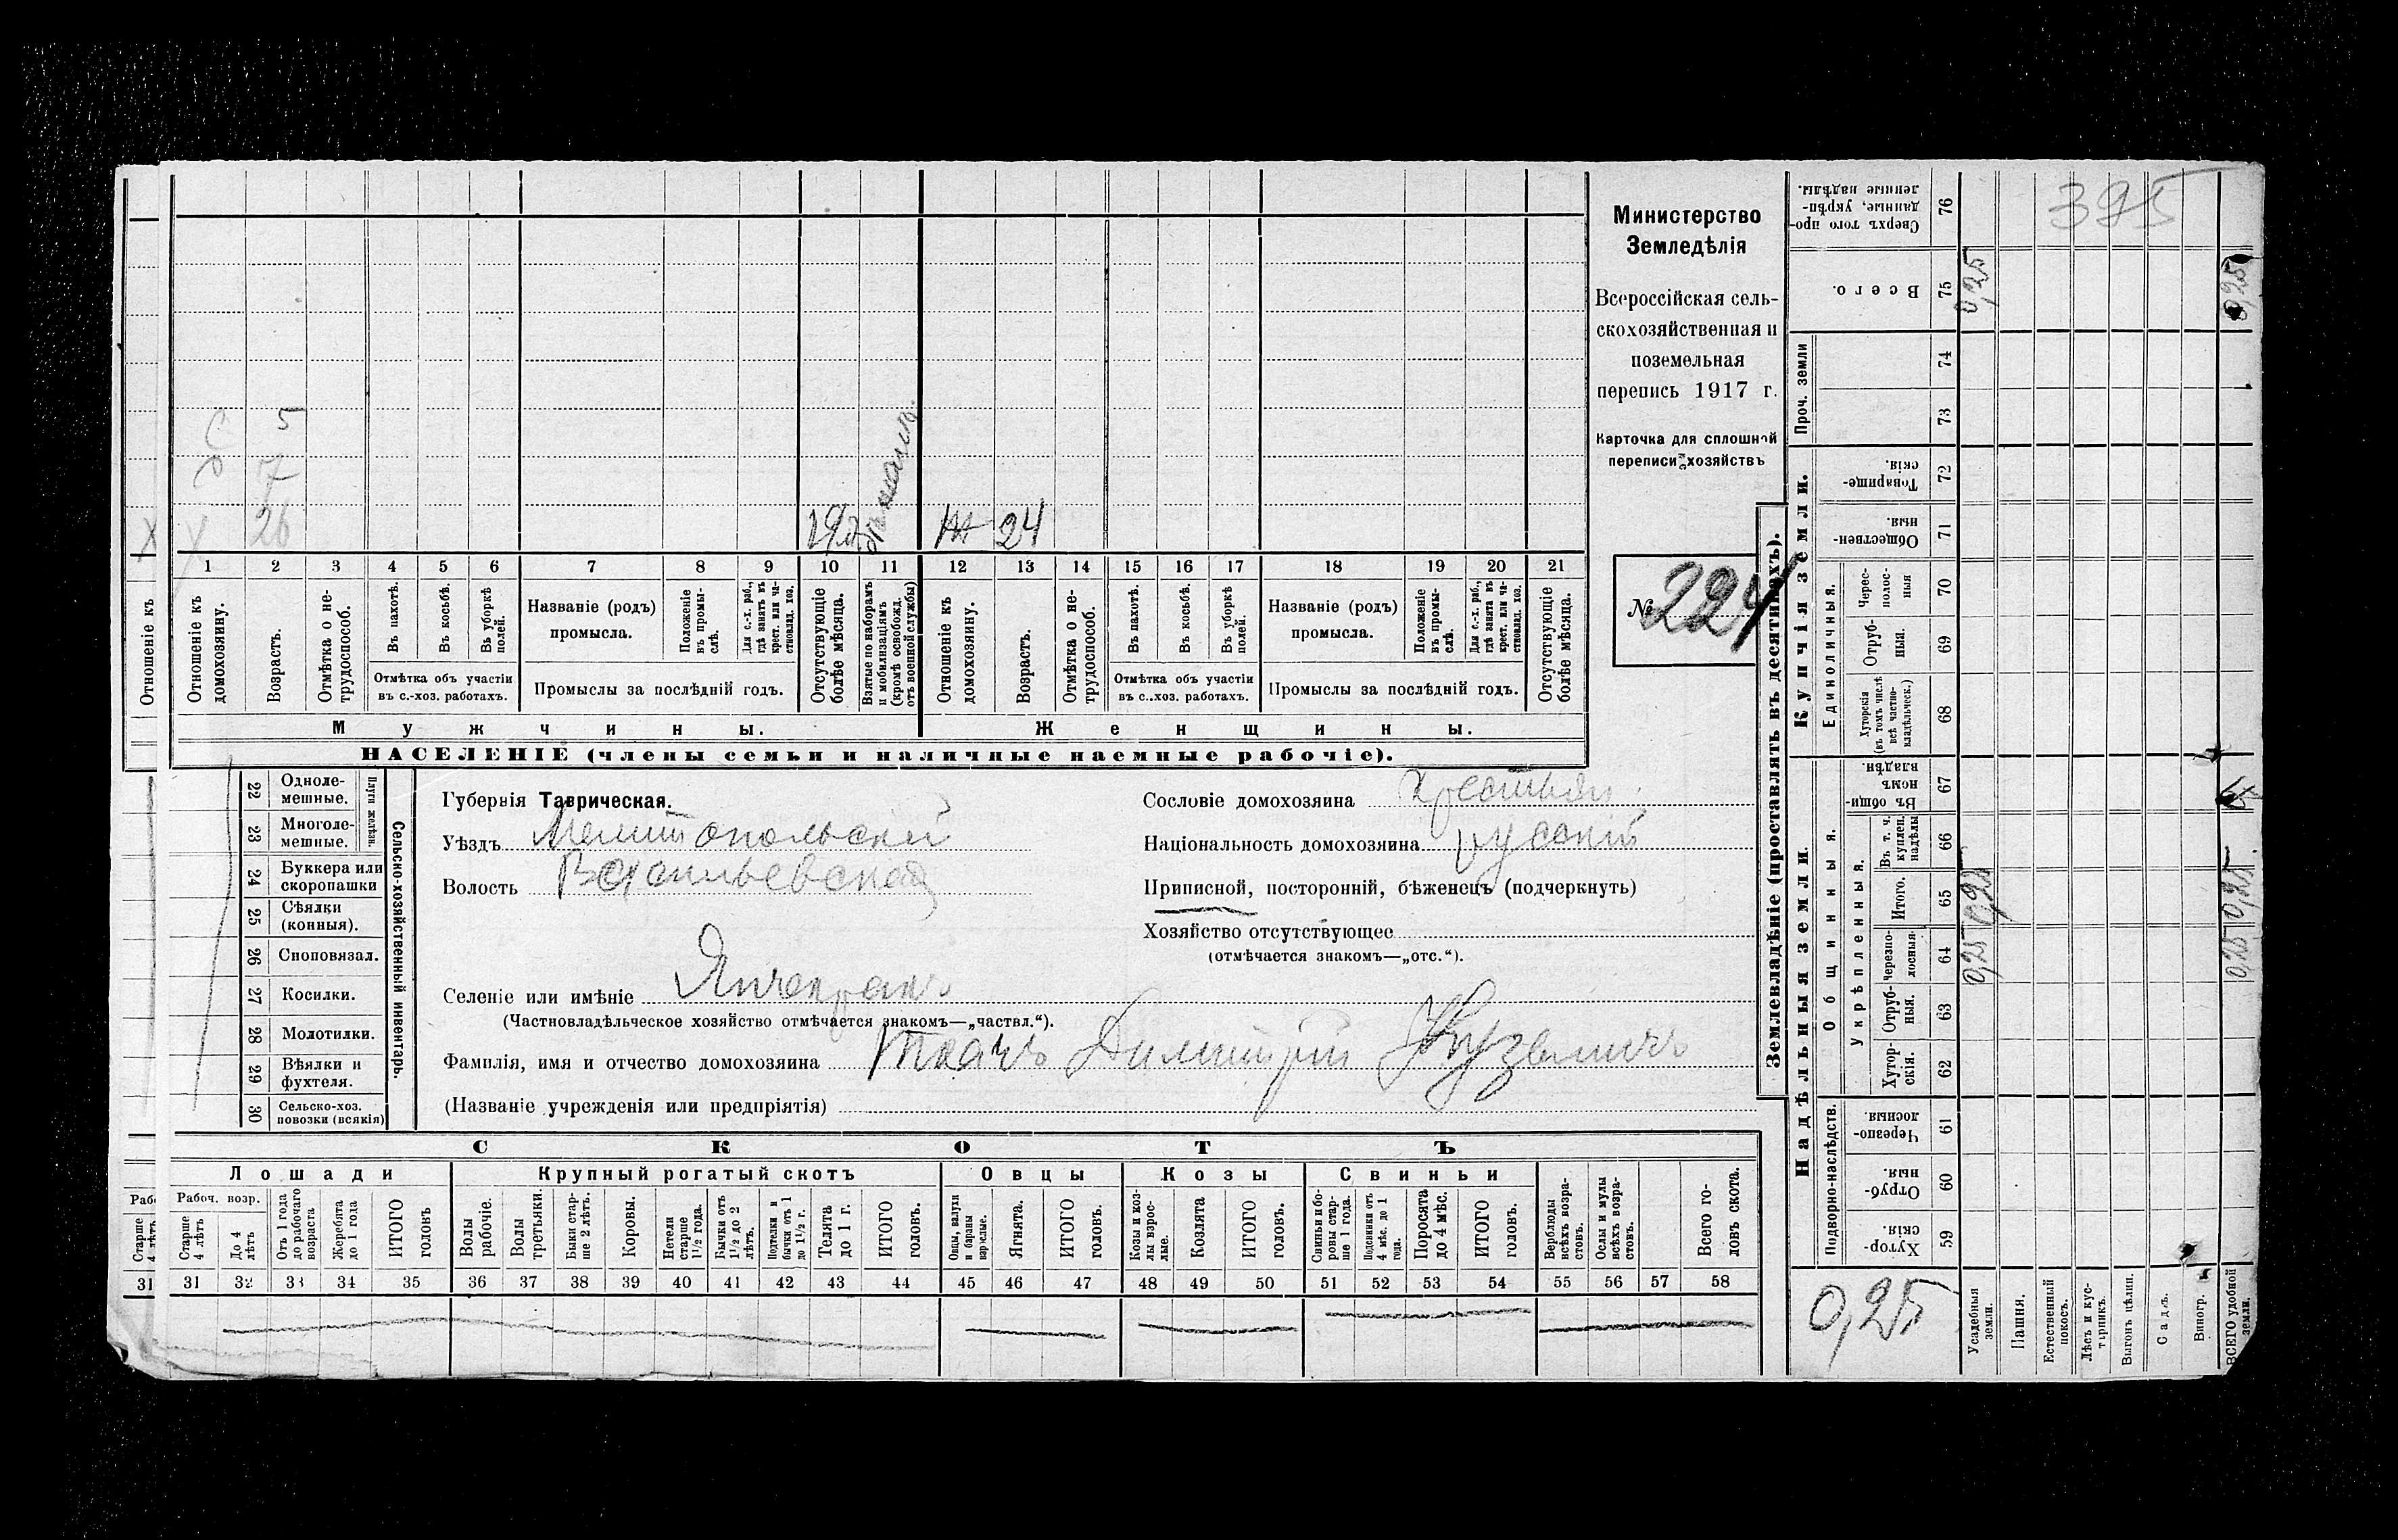 395
Министерство
Земледѣлія
Всероссійская сель-
скохозяйственная и
поземельная
перепись 1917 г.
Карточка для сплошной
переписи хозяйствъ
№ 224
С 5
С 7
Х Х 26
ж 24
1 2 3 4 5 6 7 8 9 10 11 12 13 14 15 16 17 18 19 20 21
Отношеніе къ
Отношеніе къ домохозяину.
Возрастъ.
Отмѣтка о не-трудоспособ.
Въ пахотѣ.
Въ косьбѣ.
Въ уборкѣ полей.
Отмѣтка объ участіи въ с.-хоз. работахъ.
Названіе (родъ) промысла.
Положеніе въ промы-слѣ.
Для с.-х. раб., гдѣ занятъ въ крест. или ча-стновлад. хоз.
Промыслы за послѣдній годъ.
Отсутствующіе болѣе мѣсяца.
Взятые по наборамъ и мобилизаціямъ (кромѣ освобожд. отъ военной службы)
Отношеніе къ домохозяину.
Возрастъ.
Отмѣтка о не-трудоспособ.
Въ пахотѣ.
Въ косьбѣ.
Въ уборкѣ полей.
Отмѣтка объ участіи въ с.-хоз. работахъ.
Названіе (родъ) промысла.
Положеніе въ промы-слѣ.
Для с.-х. раб., гдѣ занята въ крест. или ча-стновлад. хоз.
Промыслы за послѣдній годъ.
Отсутствующіе болѣе мѣсяца.
Мужчины. Женщины.
НАСЕЛЕНІЕ (члены семьи и наличные наемные рабочіе).
22 Одноле-мешные.
23 Многоле-мешные.
Плуги желѣзн.
24 Буккера или скоропашки
25 Сѣялки (конныя).
26 Сноповязал.
27 Косилки.
28 Молотилки.
29 Вѣялки и фухтеля.
30 Сельско-хоз. повозки (всякія)
Сельско-хозяйственный инвентарь.
Губернія Таврическая.
Уѣздъ Мелитопольскій
Волость Васильевская
Сословіе домохозяина крестьян.
Національность домохозяина русскій
Приписной, посторонній, бѣженецъ (подчеркнуть)
Хозяйство отсутствующее
(отмѣчается знакомъ—„отс.“).
Селеніе или имѣніе Янчекракъ
(Частновладѣльческое хозяйство отмѣчается знакомъ—„частвл.“).
Фамилія, имя и отчество домохозяина Ткачъ Димитрій Кузьмичъ
(Названіе учрежденія или предпріятія)
СКОТЪ
Лошади Крупный рогатый скотъ Овцы Козы Свиньи
Рабоч. возр.
Старше 4 лѣтъ
Старше 4 лѣтъ
До 4 лѣтъ
Отъ 1 года до рабочаго возраста
Жеребята до 1 года
ИТОГО головъ
Волы рабочіе.
Волы третьяки.
Быки стар-ше 2 лѣтъ.
Коровы.
Нетели старше 1½ года.
Бычки отъ 1½ до 2 лѣтъ.
Подтелки и бычки отъ 1 до 1½ г.
Телята до 1 г.
ИТОГО головъ.
Овцы, валухи и бараны взрослые.
Ягнята.
ИТОГО головъ.
Козы и коз-лы взрос-лые.
Козлята
ИТОГО головъ.
Свиньи и бо-ровы стар-ше 1 года.
Подсвинки отъ 4 мѣс. до 1 года.
Поросята до 4 мѣс.
ИТОГО головъ.
Верблюды всѣхъ возра-стовъ.
Ослы и мулы всѣхъ возра-стовъ.
Всего го-ловъ скота.
31 31 32 33 34 35 36 37 38 39 40 41 42 43 44 45 46 47 48 49 50 51 52 53 54 55 56 57 58
Землевладѣніе (проставлять въ десятинахъ).
Сверхъ того про-данные, укрѣп-ленные надѣлы. 76
Всего. 75 0,25 0,25
Проч. земли 74 73
Купчія земли.
Товарище-скія. 72
Обществен-ныя. 71
Единоличныя.
Черес-полос-ныя 70
Отруб-ныя. 69
Хуторскія (въ томъ числѣ всѣ частно-владѣльческ.) 68
Надѣльныя земли.
Общинныя.
Въ общин-номъ владѣн. 67
Укрѣпленныя.
Въ т. ч. куплен. надѣлы 66
Итого. 65 0,25 0,25
Черезпо-лосныя 64 0,25 0,25
Отруб-ныя. 63
Хутор-скія. 62
Подворно-наслѣдств.
Черезпо-лосныя 61
Отруб-ныя. 60
Хутор-скія. 59
0,25
Усадебныя земли.
Пашня.
Естественный покосъ.
Лѣсъ и кус-тарникъ.
Выгонъ цѣлин.
Садъ.
Виногр.
ВСЕГО удобной земли.